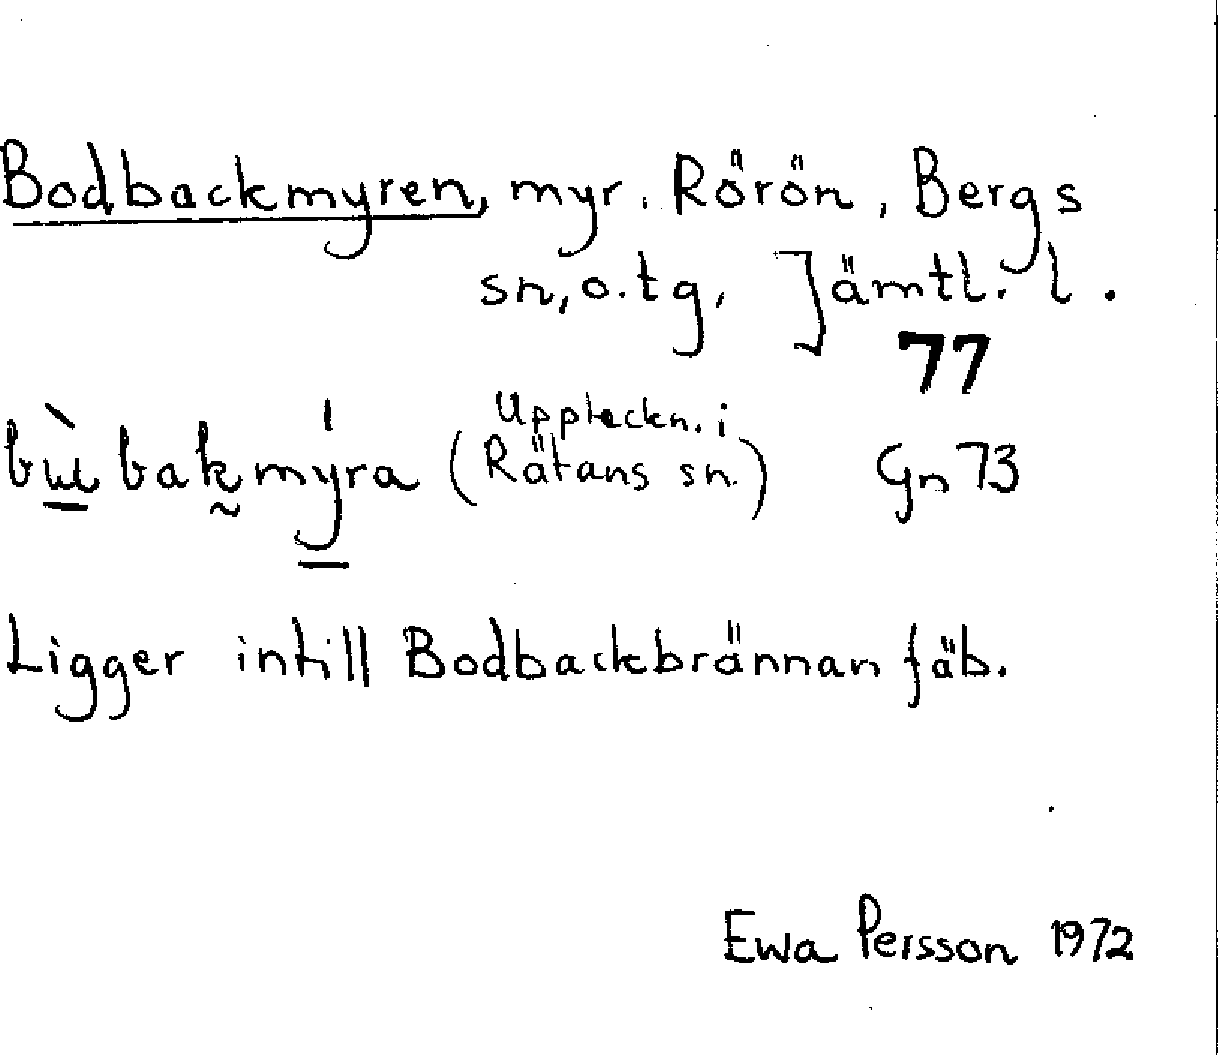 Bodbackmyren, myr. Rörön, Bergs
sn, o. tg, Jämtl. l.
77
bùbakmýra (Uppteckn. i Rätans sn.) Gn 73
Ligger intill Bodbackbrännan fäb.
Ewa Persson 1972